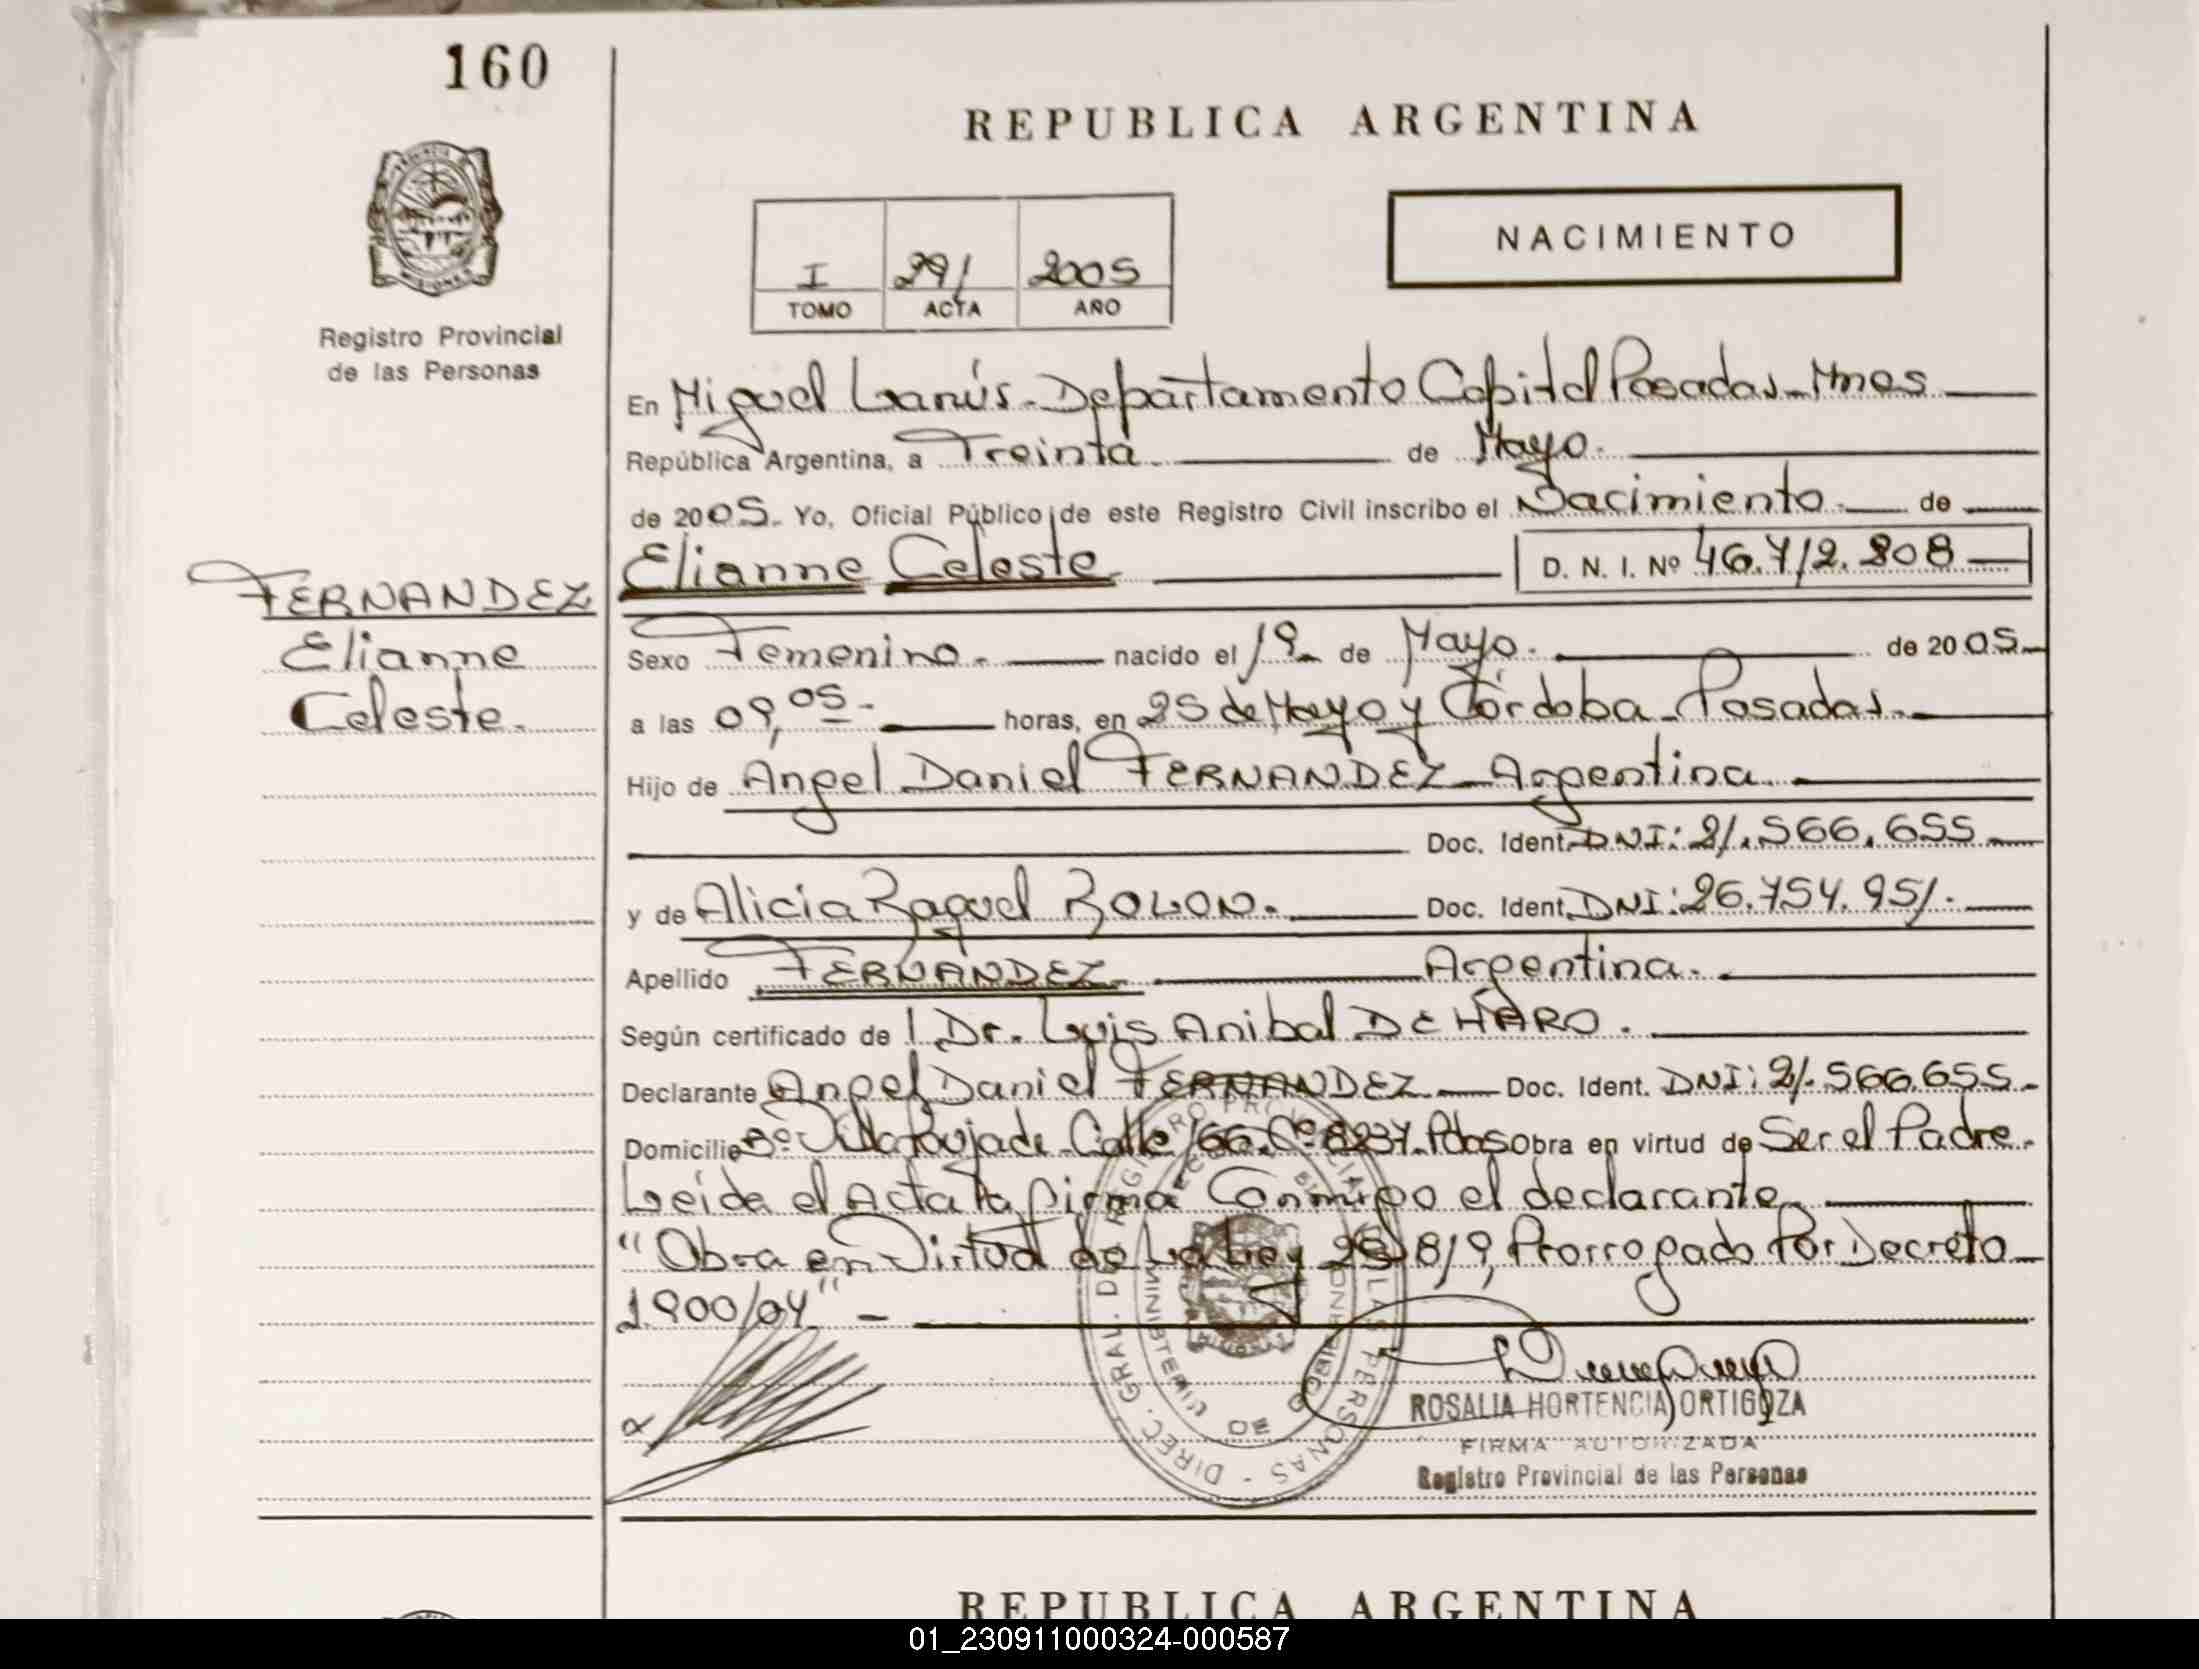 160
REPUBLICA ARGENTINA
I 291 2005
TOMO ACTA AÑO
NACIMIENTO
Registro Provincial
de las Personas
En Miguel Lanús - Departamento Capital Posadas - Mnes
República Argentina, a Treinta de Mayo.
de 2005. Yo, Oficial Público de este Registro Civil inscribo el Nacimiento. de
Elianne Celeste D. N. I. Nº 46.712.808
FERNANDEZ
Elianne
Celeste.
Sexo Femenino. nacido el 19 de Mayo. de 2005
a las 09,05 - horas, en 25 de Mayo y Córdoba - Posadas.
Hijo de Angel Daniel FERNANDEZ - Argentina.
Doc. Ident. DNI: 21.566.655
y de Alicia Raquel ROLON. Doc. Ident. DNI: 26.754.951.
Apellido FERNANDEZ Argentina.
Según certificado de l Dr. Luis Anibal DE HARO.
Declarante Angel Daniel FERNANDEZ Doc. Ident. DNI: 21.566.655
Domicilio Bº Villa Poujade - Calle 166. Cº 8237. Pdas Obra en virtud de Ser el Padre.
Leída el Acta la firma Conmigo el declarante
"Obra en Virtud de La Ley 25819, Prorrogado Por Decreto
1.900/04" -
DIREC. GRAL. DEL REGISTRO PROVINCIAL DE LAS PERSONAS -
MINISTERIO DE GOBIERNO
ROSALIA HORTENCIA ORTIGOZA
FIRMA AUTORIZADA
Registro Provincial de las Personas
REPUBLICA ARGENTINA
01_230911000324-000587